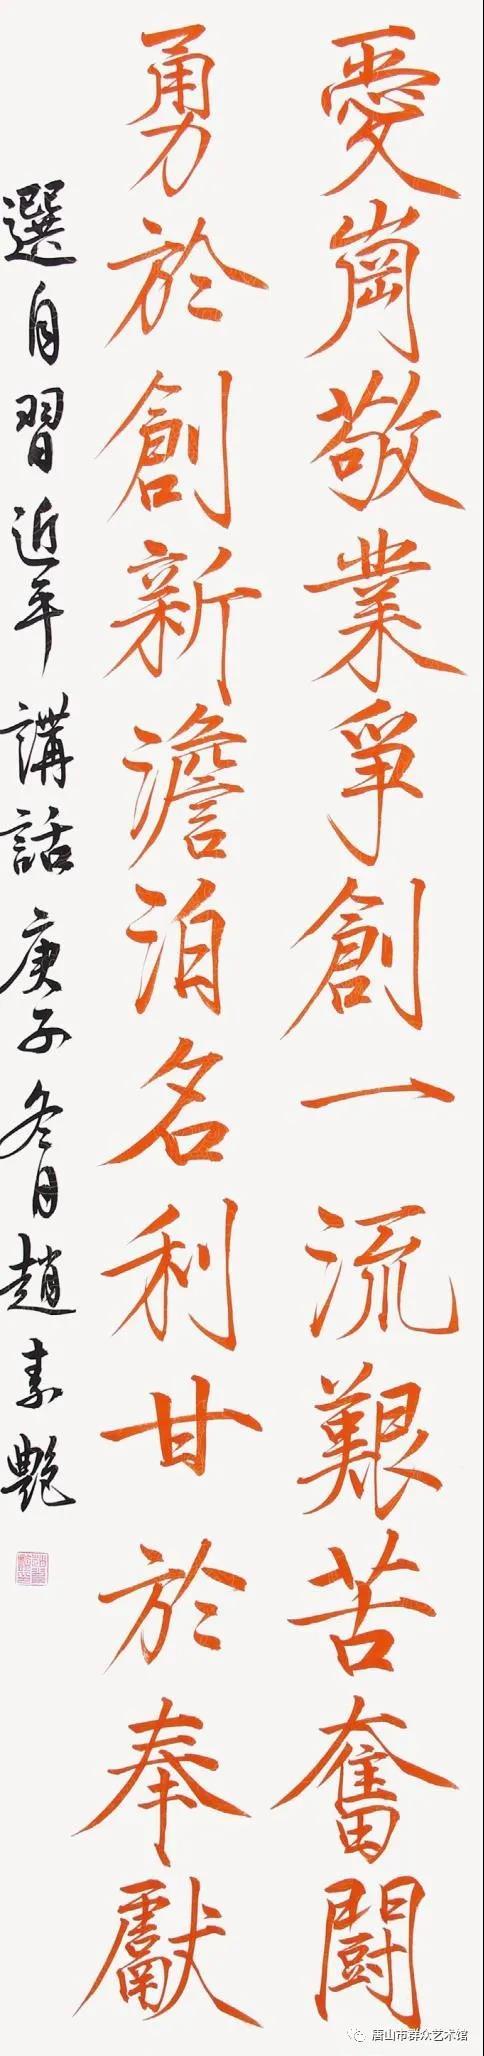 愛崗敬業爭創一流艱苦奮鬪
勇於創新澹泊名利甘於奉獻
選自習近平講話庚子冬月趙素艷
唐山市群众艺术馆